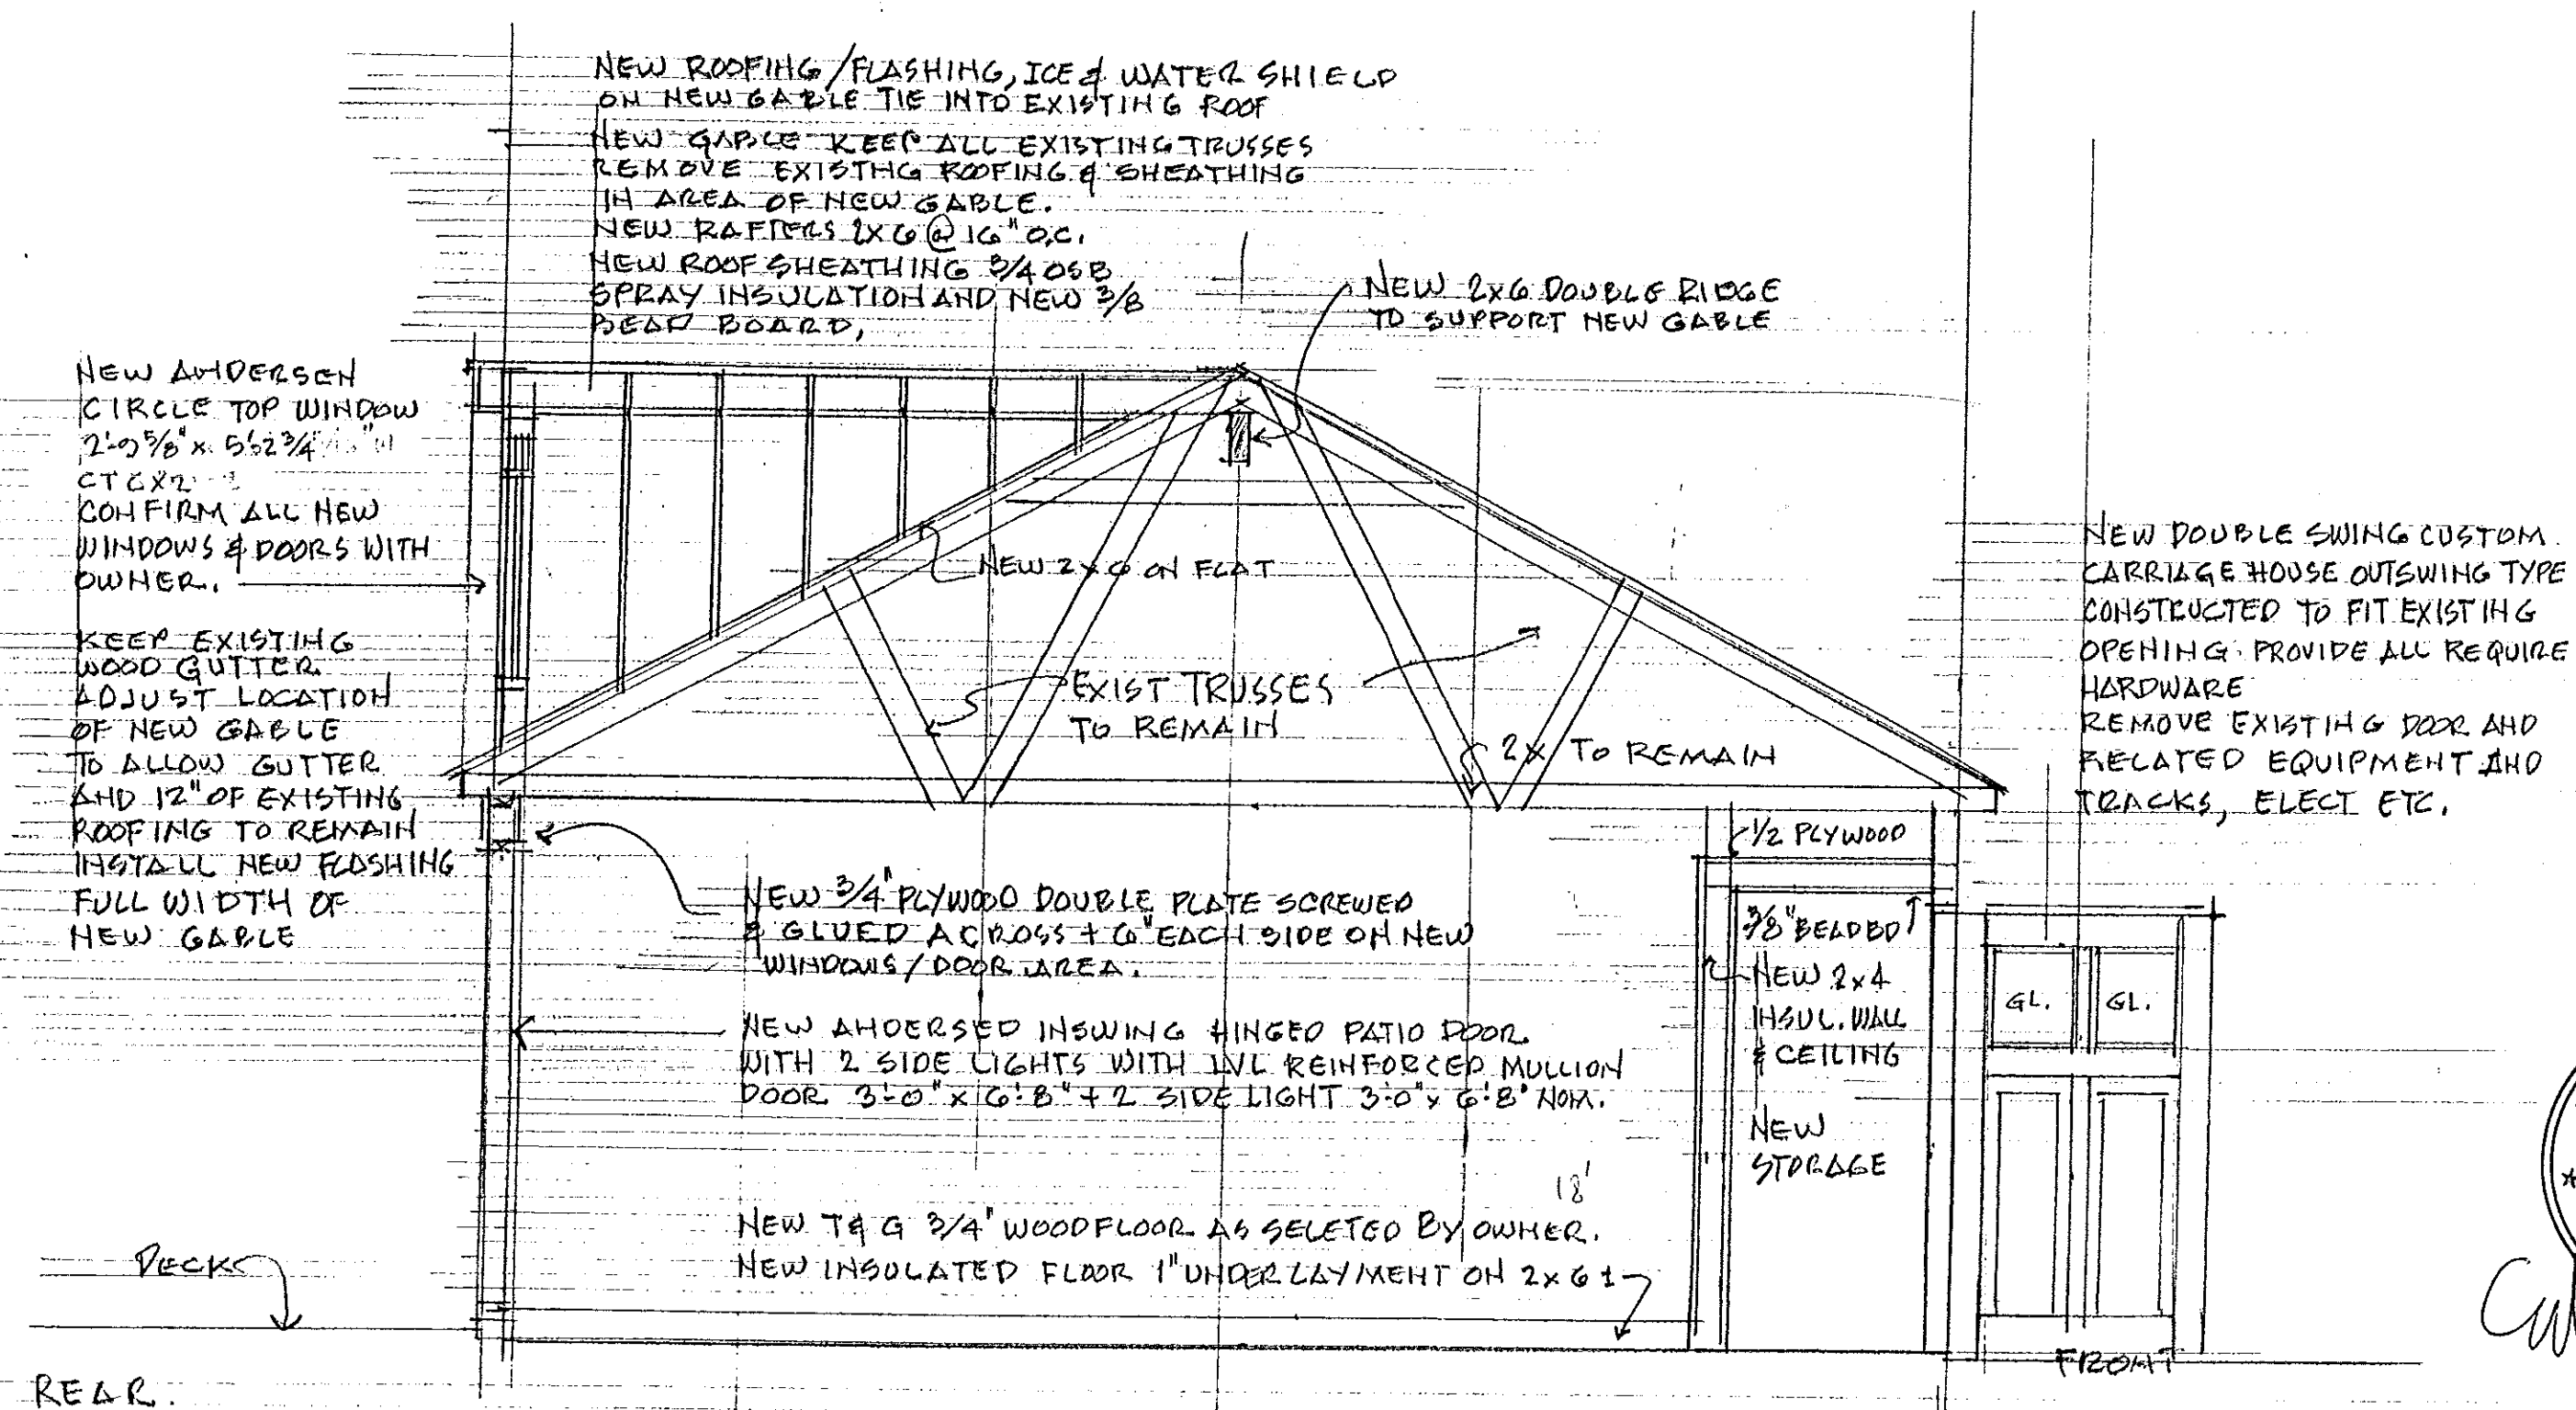 NEW ROOFING/FLASHING, ICE & WATER SHIELD
ON NEW GABLE TIE INTO EXISTING ROOF
NEW GABLE KEEP ALL EXISTING TRUSSES
REMOVE EXISTHG ROOFING & SHEATHING
IN AREA OF NEW GABLE.
NEW RAFTERS 2X6 @ 16" O.C.
NEW ROOF SHEATHING 3/4 OSB
SPRAY INSULATION AND NEW 3/8
BEAD BOARD,
NEW 2X6 DOUBLE RIDGE
TO SUPPORT NEW GABLE
NEW ANDERSEN
CIRCLE TOP WINDOW
2'-9 5/8" x 5'-2 3/4"
CONFIRM ALL NEW
WINDOWS & DOORS WITH
OWNER.
KEEP EXISTING
WOOD GUTTER
ADJUST LOCATION
OF NEW GABLE
TO ALLOW GUTTER
AND 12" OF EXISTING
ROOFING TO REMAIN
INSTALL NEW FLASHING
FULL WIDTH OF
NEW GABLE
NEW 2X6 ON FLAT
EXIST TRUSSES
TO REMAIN
2X TO REMAIN
NEW DOUBLE SWING CUSTOM
CARRIAGE HOUSE OUTSWING TYPE
CONSTRUCTED TO FIT EXISTING
OPENING PROVIDE ALL REQUIRE
HARDWARE
REMOVE EXISTING DOOR AND
RELATED EQUIPMENT AND
TRACKS, ELECT ETC.
1/2 PLYWOOD
3/8" BEADBD
NEW 2x4
INSUL. WALL
& CEILING
NEW
STORAGE
GL. GL.
NEW 3/4" PLYWOOD DOUBLE PLATE SCREWED
& GLUED ACROSS + 6" EACH SIDE ON NEW
WINDOWS/DOOR AREA.
NEW ANDERSED INSWING HINGED PATIO DOOR
WITH 2 SIDE LIGHTS WITH LVL REINFORCED MULLION
DOOR 3'-0" x 6'-8" + 2 SIDE LIGHT 3'-0" x 6'-8" NOM.
18'
NEW T & G 3/4" WOOD FLOOR AS SELETED BY OWNER.
NEW INSULATED FLOOR 1" UNDERLAYMENT ON 2x6 ±
DECK
FRONT
REAR.